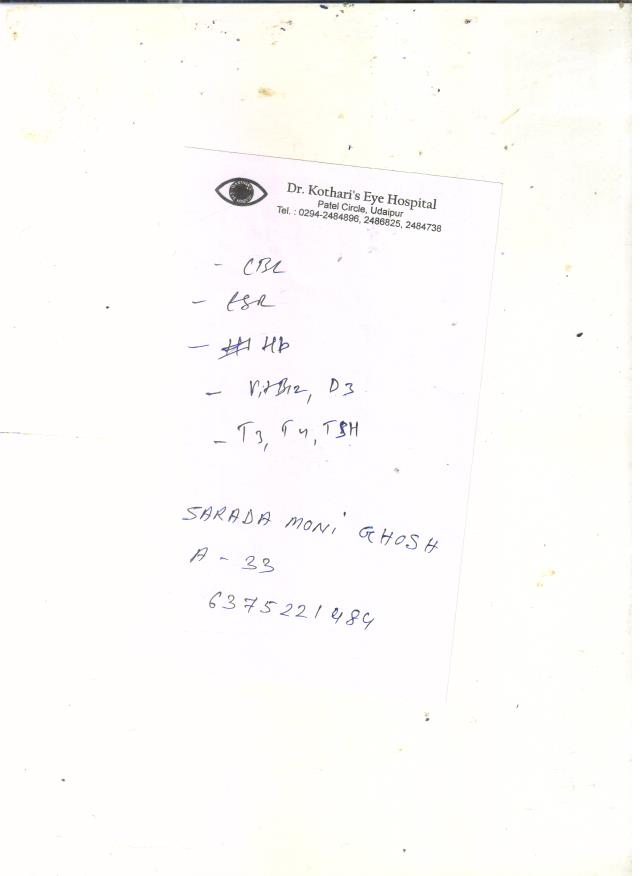 Dr. Kothari's Eye Hospital
Patel Circle, Udaipur
Tel. : 0294-2484896, 2486825, 2484738
- CBC
- ESR
- Hb
- Vit B12, D3
- T3, T4, TSH
SARADA MONI GHOSH
A - 33
6375221484